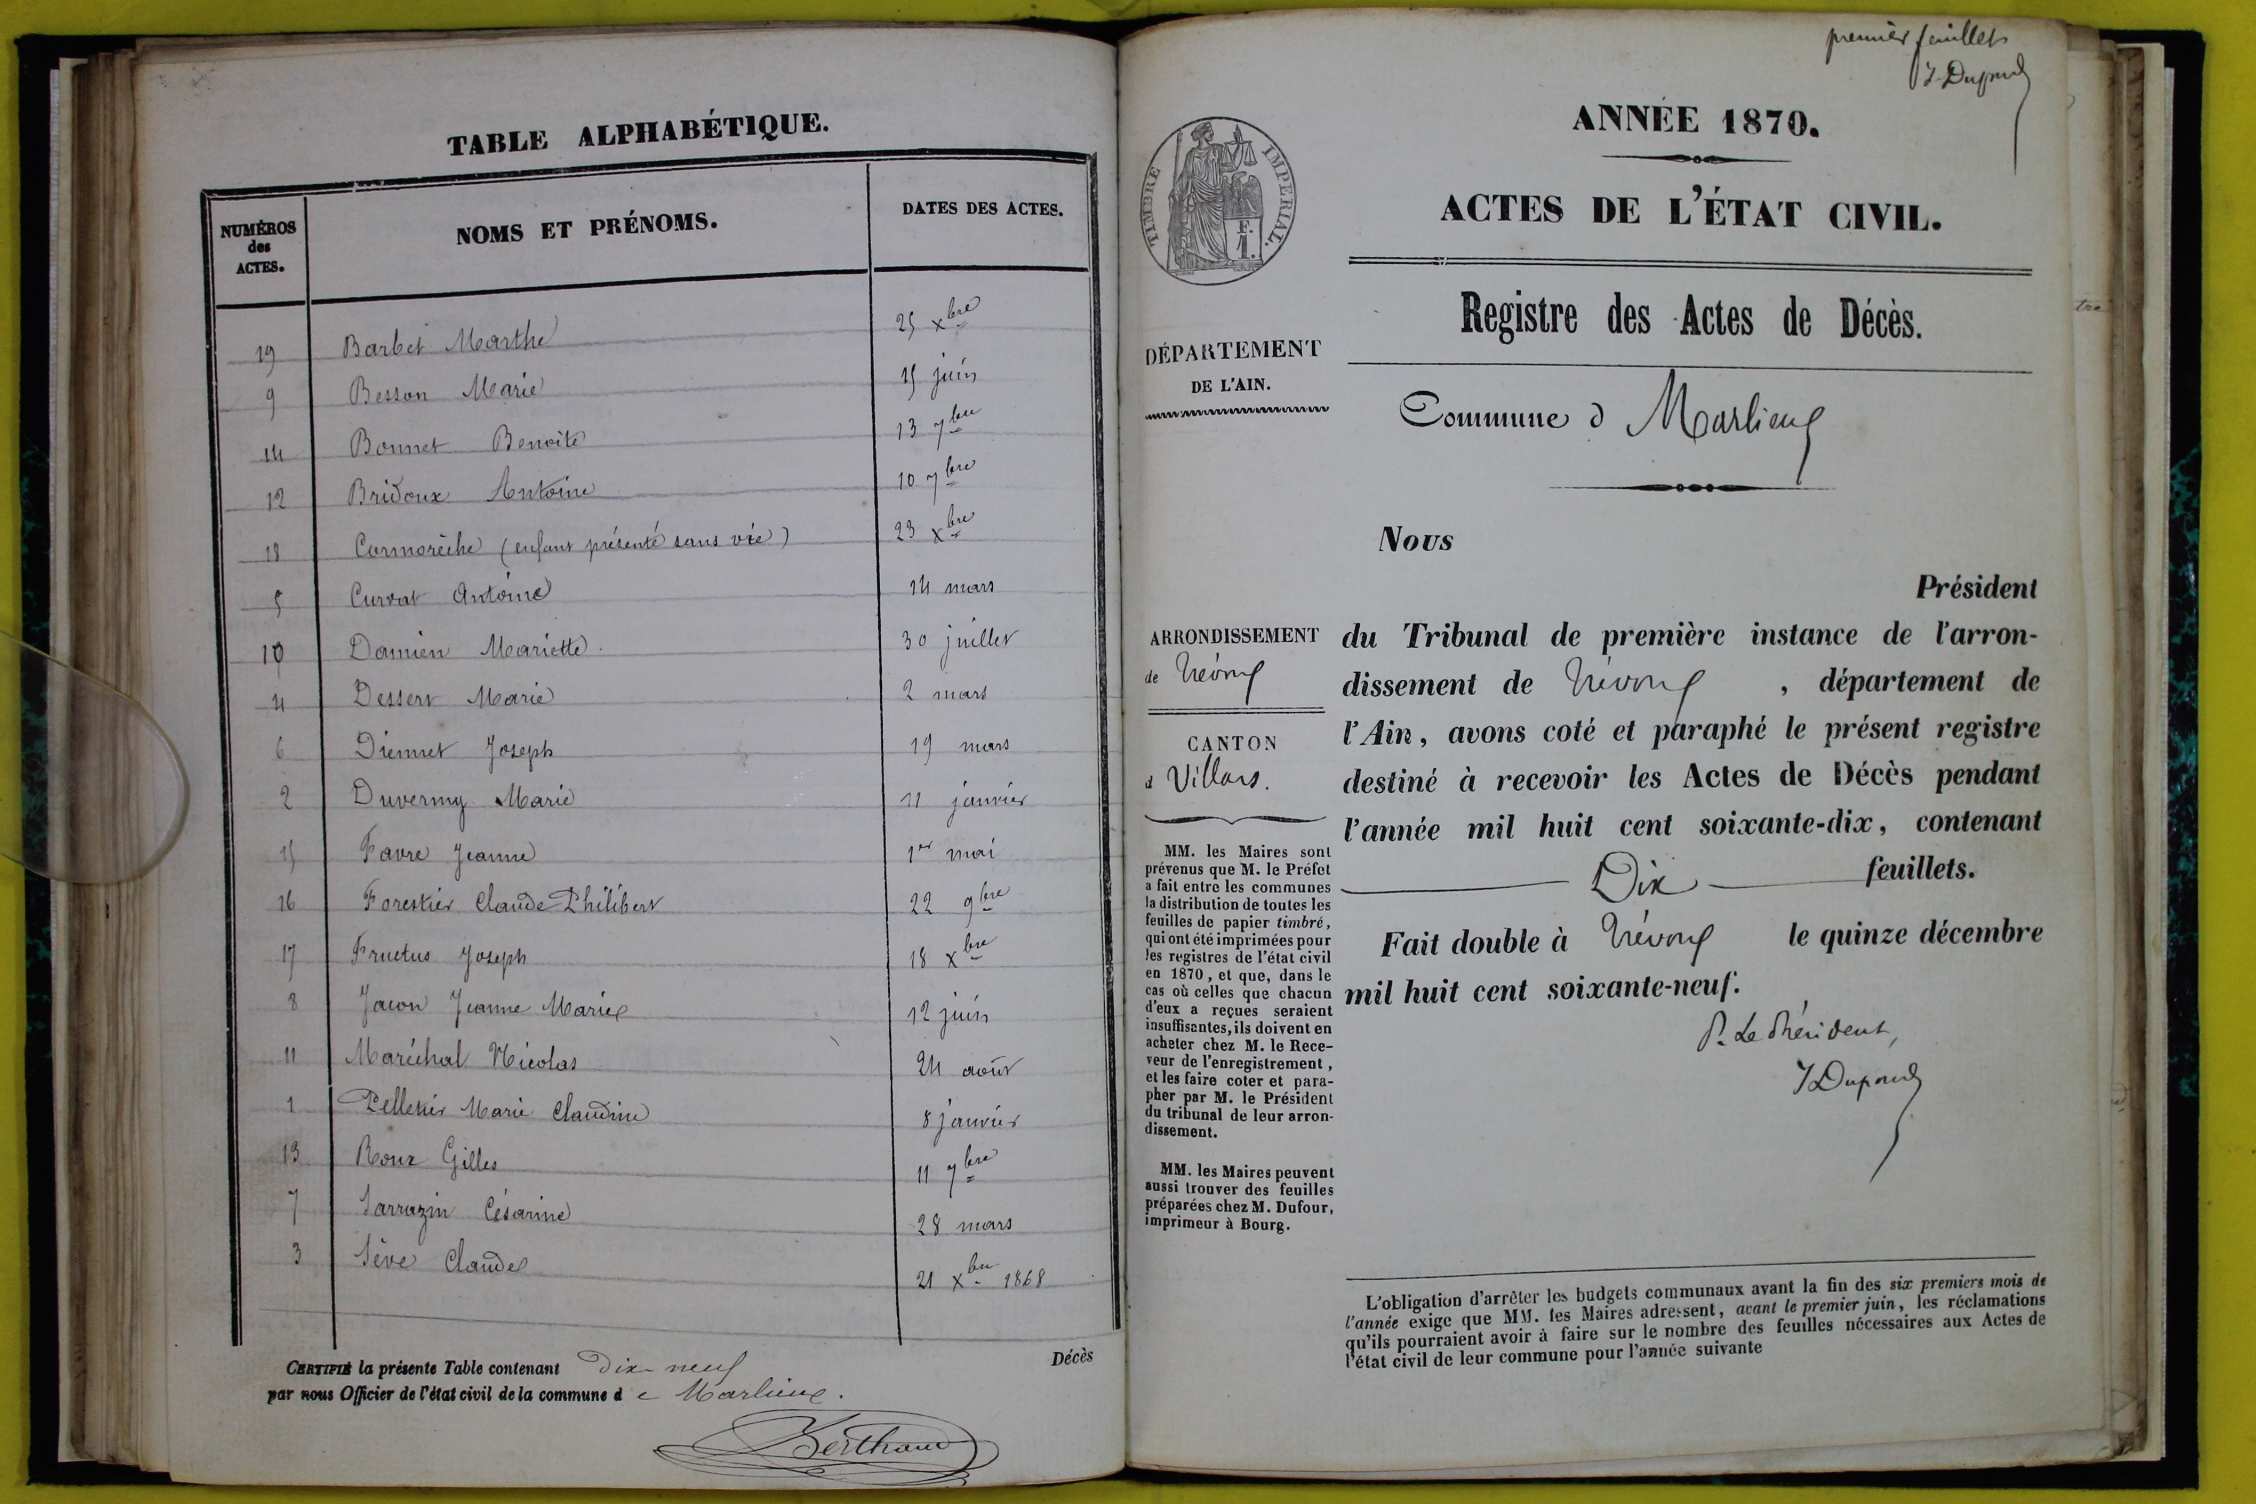 TABLE ALPHABÉTIQUE.
NUMÉROS des ACTES. NOMS ET PRÉNOMS. DATES DES ACTES.
19 Barbet Marthe 25 xbre
9 Besson Marie 15 juin
14 Bonnet Benoite 13 7bre
12 Bridoux Antoine 10 7bre
18 Cormorèche (enfant présenté sans vie) 23 xbre
5 Curvat Antoine 14 mars
10 Damien Mariette 30 juillet
4 Dessert Marie 2 mars
6 Joseph 19 mars
2 Duvernay Marie 11 janvier
15 Favre Jeanne 1er mai
16 Forestier Claude Philibert 22 9bre
17 Fructus Joseph 18 xbre
8 Jacon Jeanne Marie 12 juin
11 Maréchal Nicolas 24 août
1 Pelletier Marie Claudine 8 janvier
13 Roux Gilles 11 7bre
7 Sarrazin Césarine 28 mars
3 Sève Claude 21 xbre 1868
CERTIFIÉ la présente Table contenant dix-neuf Décès
par nous Officier de l'état civil de la commune de Marlieux.
Berthaud
premier feuillet
J. Dupond
TIMBRE IMPÉRIAL.
F.
1.
ANNÉE 1870.
ACTES DE L'ÉTAT CIVIL.
Registre des Actes de Décès.
DÉPARTEMENT
DE L'AIN.
Commune d Marlieux
ARRONDISSEMENT
de Trévoux
CANTON
d Villars.
MM. les Maires sont
prévenus que M. le Préfet
a fait entre les communes
la distribution de toutes les
feuilles de papier timbré,
qui ont été imprimées pour
les registres de l'état civil
en 1870, et que, dans le
cas où celles que chacun
d'eux a reçues seraient
insuffisantes, ils doivent en
acheter chez M. le Rece-
veur de l'enregistrement,
et les faire coter et para-
pher par M. le Président
du tribunal de leur arron-
dissement.
MM. les Maires peuvent
aussi trouver des feuilles
préparées chez M. Dufour,
imprimeur à Bourg.
Nous
Président
du Tribunal de première instance de l'arron-
dissement de Trévoux, département de
l'Ain, avons coté et paraphé le présent registre
destiné à recevoir les Actes de Décès pendant
l'année mil huit cent soixante-dix, contenant
Dix feuillets.
Fait double à Trévoux le quinze décembre
mil huit cent soixante-neuf.
P. Le Président,
J Dupond
L'obligation d'arrêter les budgets communaux avant la fin des six premiers mois de
l'année exige que MM. les Maires adressent, avant le premier juin, les réclamations
qu'ils pourraient avoir à faire sur le nombre des feuilles nécessaires aux Actes de
l'état civil de leur commune pour l'année suivante